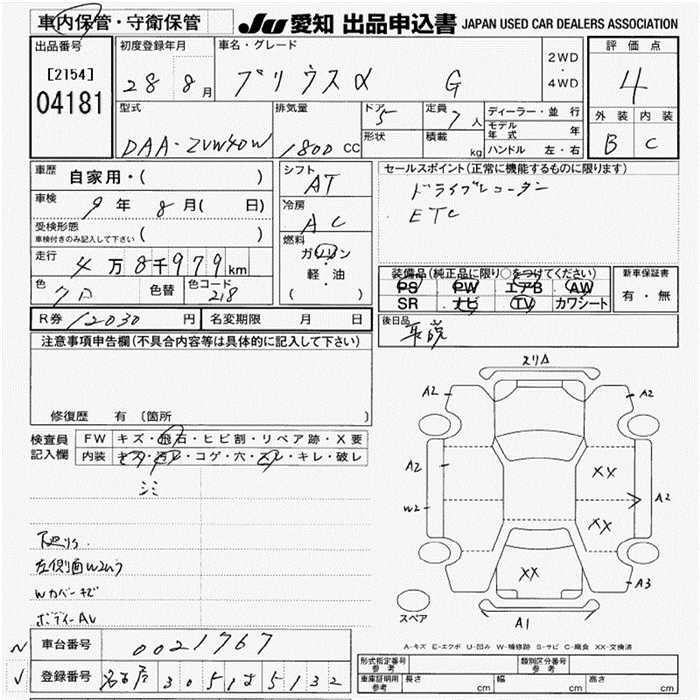 車内保管・守衛保管
JU 愛知 出品申込書 JAPAN USED CAR DEALERS ASSOCIATION
出品番号 初度登録年月 車名・グレード 評価点
[2154] 28 8月 プリウスα G 2WD・4WD 4
04181
型式 排気量 ドア 5 定員 7人 ディーラー・並行 外装 内装
モデル年式 年
DAA-ZVW40W 1800CC 形状 積載 kg ハンドル 左・右 B C
車歴 自家用・( ) シフト AT セールスポイント(正常に機能するものに限ります)
ドライブレコーダー
車検 9年 8月( 日) 冷房 AC ETC
受検形態
車検付きのみ記入して下さい ( ) 燃料 ガソリン・軽・油 ( )
走行 4万8千979km 装備品(純正品に限り○をつけてください) 新車保証書
色 色替 色コード 218 PS PW エアB AW 有・無
SR ナビ TV カワシート
R券 12030円 名変期限 月 日 後日品
注意事項申告欄(不具合内容等は具体的に記入して下さい) 取説
スリム
A2 A2
修復歴 有 (箇所
検査員記入欄 FW キズ・飛石・ヒビ割・リペア跡・X要
内装 キズ・汚レ・コゲ・穴・スレ・キレ・破レ
シミ
A2 XX A2
W2 XX
下廻りS
左側面W2ムラ XX A3
Wカバーキズ
ボディーAU スペア A1
A-キズ E-エクボ U-凹み W-補修跡 S-サビ C-腐食 XX-交換済
車台番号 0021767 形式指定番号 参考 類別区分番号 参考
登録番号 名古屋 305 5132 車庫証明用 参考 長さ cm 幅 cm 高さ cm